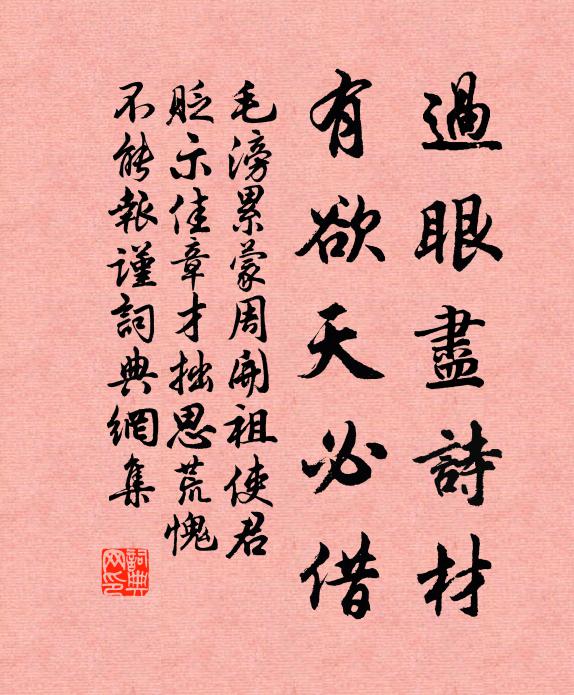 過眼盡詩材
有欲天必借
毛滂累蒙周開祖使君
貶示佳章才拙思荒愧
不能報謹詞典網集
詞典
网印